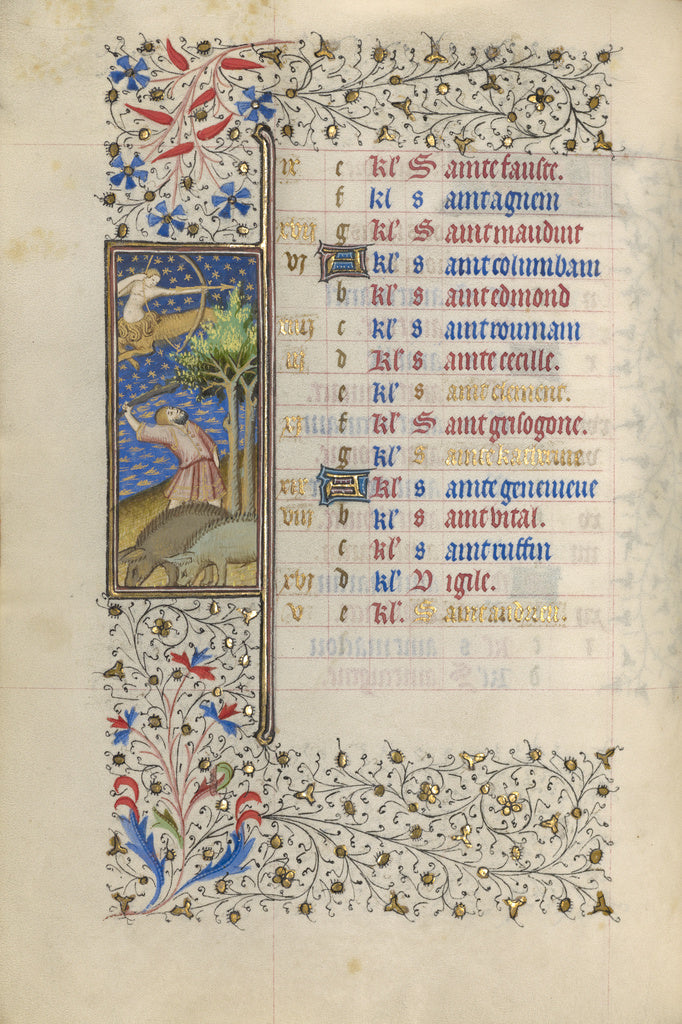 ix e kl' Sainte fauste.
f kl saint agnem
xvii g kl' Saint mauduit
vi A kl' saint columbam
b kl' saint edmond
xiiii c kl' saint roumain
iii d kl' sainte cecille.
e kl' saint clement.
xi f kl' Saint grisogone.
g kl' Sainte katherine
xix A kl' sainte genevieve
viii b kl' saint vital.
c kl' saint ruffin
xvi d kl' Vigile.
v e kl'. Saint andrieu.